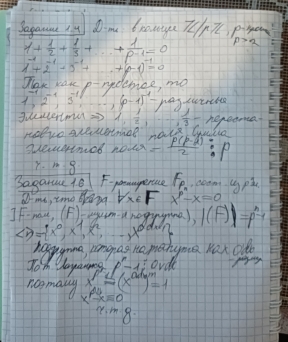 Задание 1.4 Д-ть в кольце ℤ/pℤ, p-простое p>2
1 + 1/2 + 1/3 + ... + 1/(p-1) = 0
1⁻¹ + 2⁻¹ + 3⁻¹ + ... + (p-1)⁻¹ = 0
Так как p-простое, то
1⁻¹, 2⁻¹, 3⁻¹, ..., (p-1)⁻¹ - различные
элементы ⇒ 1, 1/2, ..., 1/3 - перестановка
элементов поля, сумма
элементов поля - p(p-1)/2 ⋮ p
ч.т.д
Задание 1.6 F-расширение Fp, сост. из pⁿ эл
Д-ть, что ∀x∈F x^pⁿ - x = 0
F-пол, (F)-мульт. подгруппа), |(F)| = pⁿ-1
<x> = {x⁰, x¹, x², ... x^}
Подгруппа, которая натянута как
По т. Лагранжа pⁿ-1 ⋮ Ordx
поэтому x^pⁿ⁻¹ = (x^ordx)^m = 1
x^pⁿ - x = 0
ч.т.д.